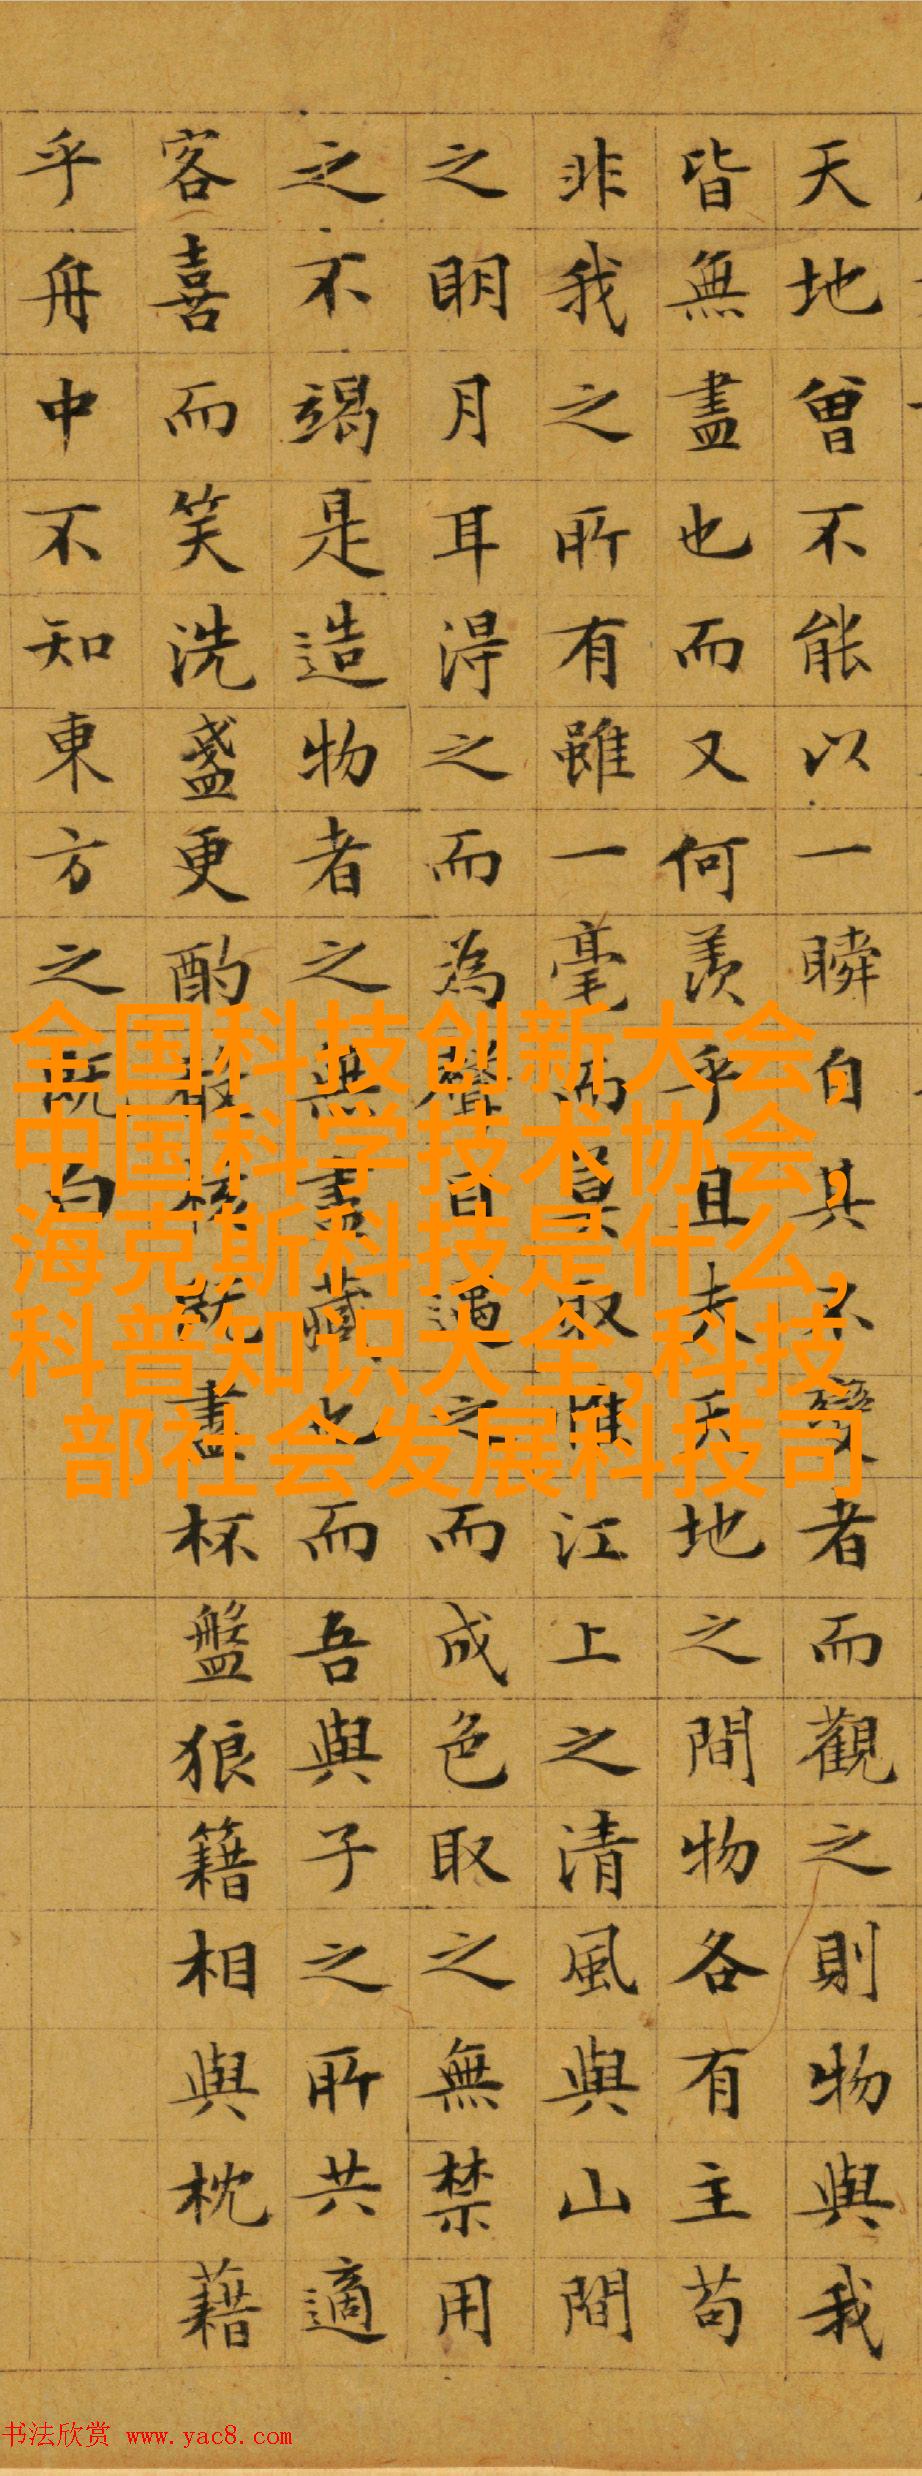 天地曾不能以一瞬自其不變者而觀之則物與我
皆無盡也而又何羨乎且夫天地之間物各有主苟
非我之所有雖一毫而莫取惟江上之清風與山間
之明月耳得之而為聲目遇之而成色取之無禁用
之不竭是造物者之無盡藏也而吾與子之所共適
客喜而笑洗盞更酌殽核既盡杯盤狼籍相與枕藉
乎舟中不知東方之既白
全国科技创新大会,
中国科学技术协会,
海克斯科技是什么,
科普知识大全,科技
部社会发展科技司
书法欣赏 www.yac8.com